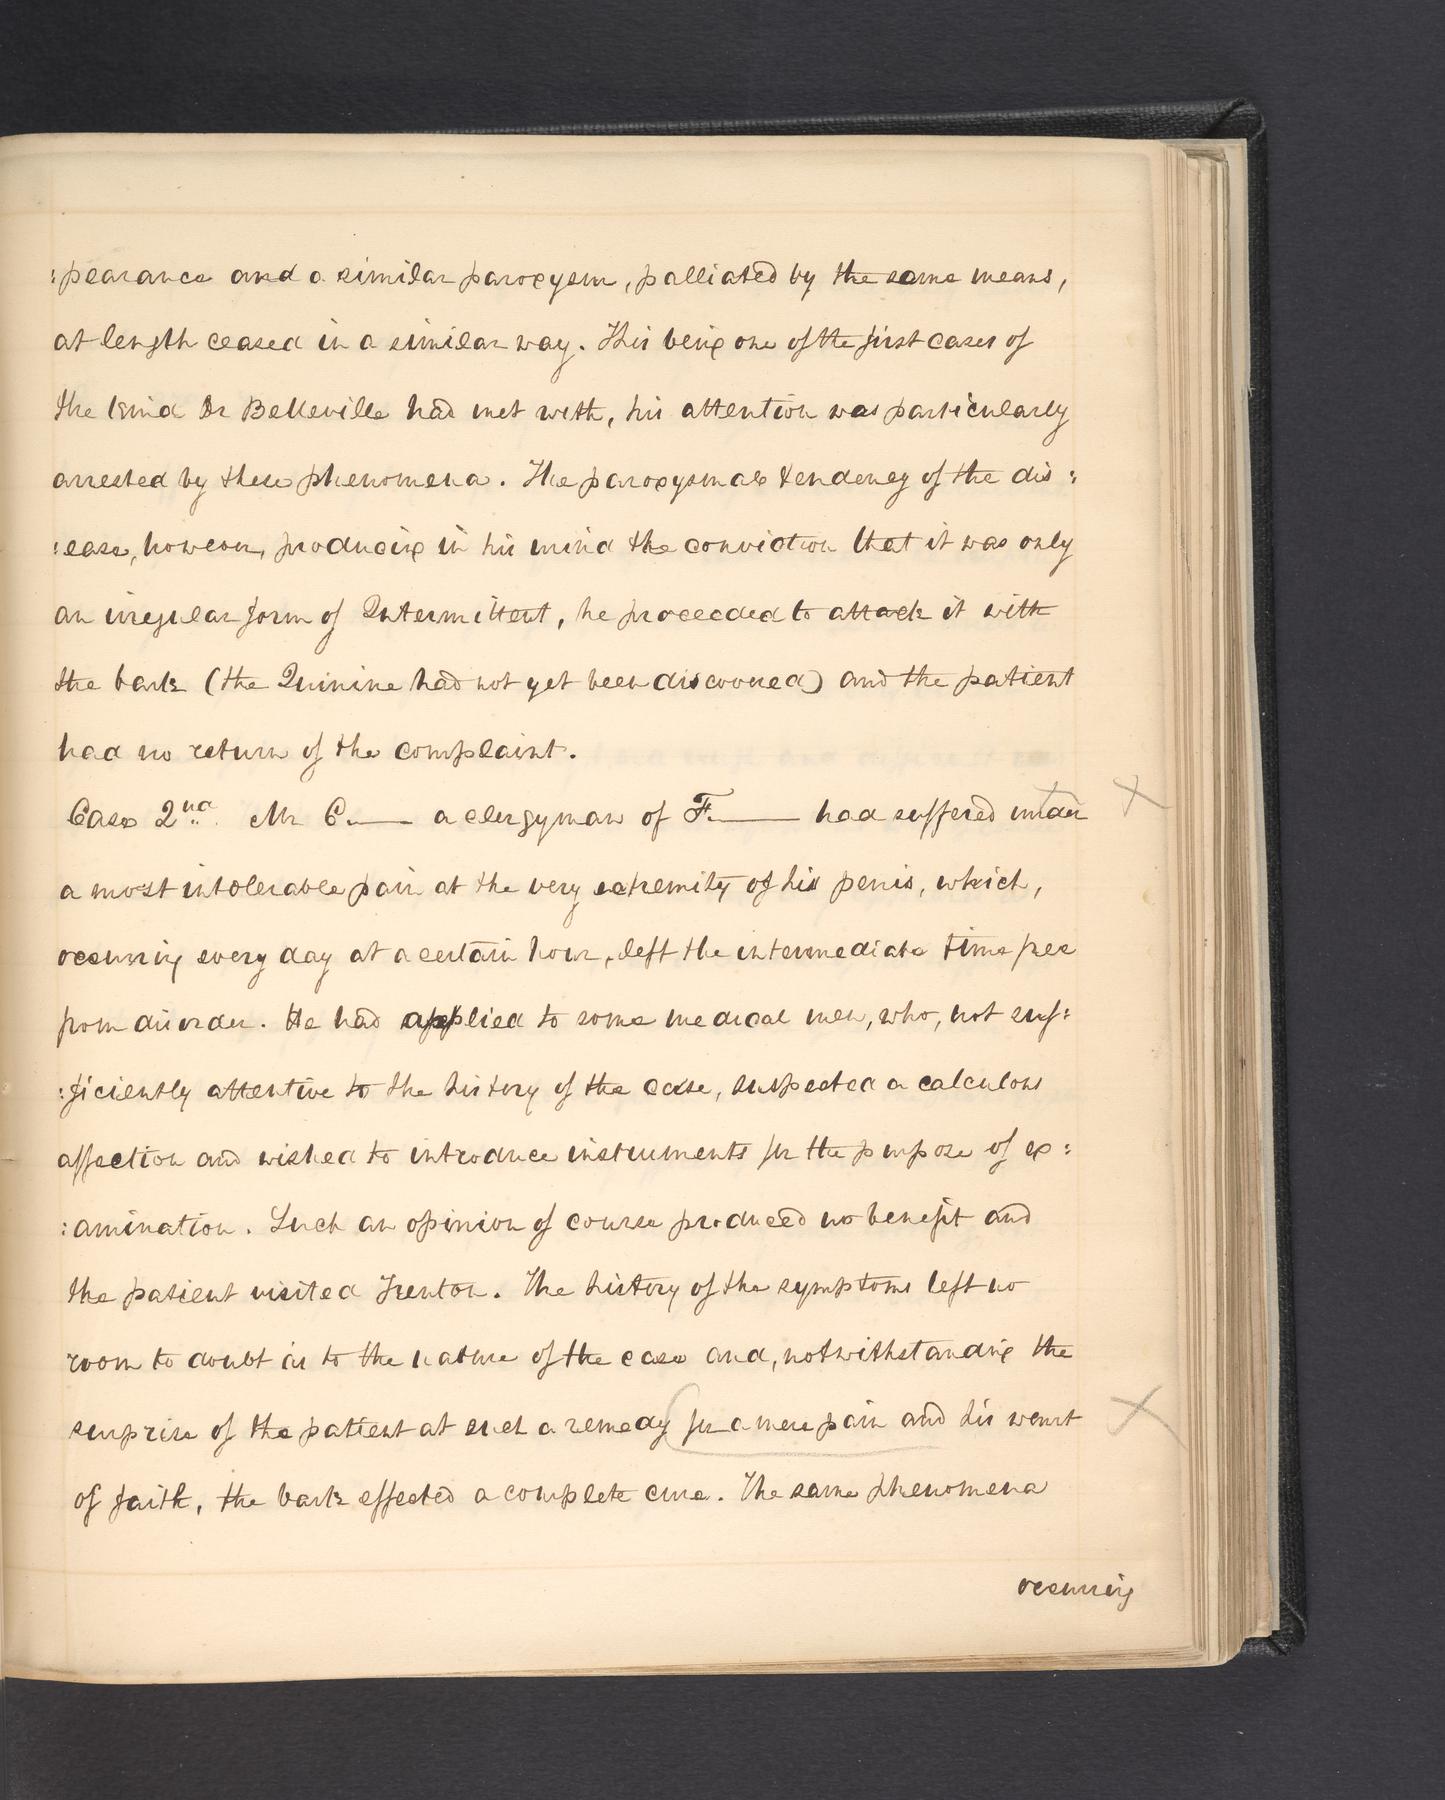 :pearance and a similar paroxysm, palliated by the same means,
at length ceased in a similar way. This being one of the first cases of
the kind Dr Belleville had met with, his attention was particularly
arrested by these phenomena. The paroxysmal tendency of the dis:
:ease, however, producing in his mind the conviction that it was only
an irregular form of Intermittent, he proceeded to attack it with
the bark (the Quinine had not yet been discovered) and the patient
had no return of the complaint.
Case 2nd. Mr C.—— a clergyman of F.——— had suffered under
a most intolerable pain at the very extremity of his penis, which,
occurring every day at a certain hour, left the intermediate time free
from disorder. He had applied to some medical men, who, not suf:
:ficiently attentive to the history of the case, suspected a calculous
affection and wished to introduce instruments for the purpose of ex:
:amination. Such an opinion of course produced no benefit and
the patient visited Trenton. The history of the symptoms left no
room to doubt as to the nature of the case and, notwithstanding the
surprise of the patient at such a remedy for a mere pain and his want
of faith, the bark effected a complete cure. The same phenomena
occurring